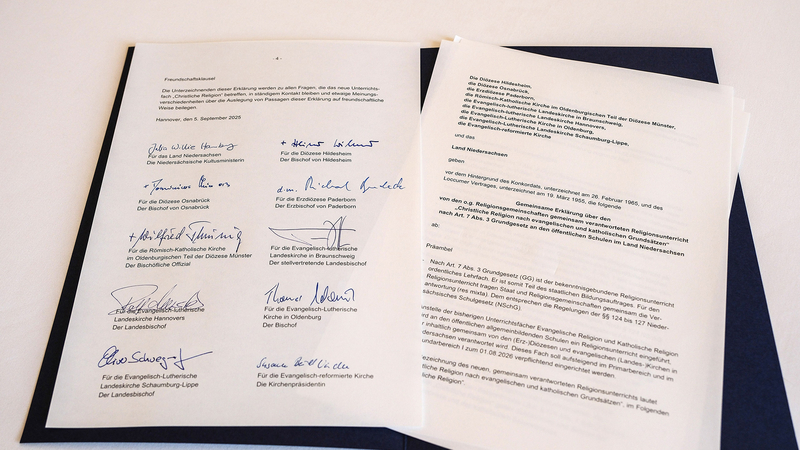 - 4 -
Freundschaftsklausel
Die Unterzeichnenden dieser Erklärung werden zu allen Fragen, die das neue Unterrichts-
fach „Christliche Religion“ betreffen, in ständigem Kontakt bleiben und etwaige Meinungs-
verschiedenheiten über die Auslegung von Passagen dieser Erklärung auf freundschaftliche
Weise beilegen.
Hannover, den 5. September 2025
Julia Willie Hamburg
Für das Land Niedersachsen
Die Niedersächsische Kultusministerin
+ Heiner Wilmer
Für die Diözese Hildesheim
Der Bischof von Hildesheim
+ Dominicus
Für die Diözese Osnabrück
Der Bischof von Osnabrück
Für die Erzdiözese Paderborn
Der Erzbischof von Paderborn
+ Wilfried Theising
Für die Römisch-Katholische Kirche
im Oldenburgischen Teil der Diözese Münster
Der Bischöfliche Offizial
Für die Evangelisch-lutherische
Landeskirche in Braunschweig
Der stellvertretende Landesbischof
Für die Evangelisch-lutherische
Landeskirche Hannovers
Der Landesbischof
Thomas
Für die Evangelisch-Lutherische
Kirche in Oldenburg
Der Bischof
Für die Evangelisch-Lutherische
Landeskirche Schaumburg-Lippe
Der Landesbischof
Susanne
Für die Evangelisch-reformierte Kirche
Die Kirchenpräsidentin
Die Diözese Hildesheim,
die Diözese Osnabrück,
die Erzdiözese Paderborn,
die Römisch-Katholische Kirche im Oldenburgischen Teil der Diözese Münster,
die Evangelisch-lutherische Landeskirche in Braunschweig,
die Evangelisch-lutherische Landeskirche Hannovers,
die Evangelisch-Lutherische Kirche in Oldenburg,
die Evangelisch-Lutherische Landeskirche Schaumburg-Lippe,
die Evangelisch-reformierte Kirche
und das
Land Niedersachsen
geben
vor dem Hintergrund des Konkordats, unterzeichnet am 26. Februar 1965, und des
Loccumer Vertrages, unterzeichnet am 19. März 1955, die folgende
Gemeinsame Erklärung über den
von den o.g. Religionsgemeinschaften gemeinsam verantworteten Religionsunterricht
„Christliche Religion nach evangelischen und katholischen Grundsätzen“
nach Art. 7 Abs. 3 Grundgesetz an den öffentlichen Schulen im Land Niedersachsen
ab:
Präambel
Nach Art. 7 Abs. 3 Grundgesetz (GG) ist der bekenntnisgebundene Religionsunterricht
ordentliches Lehrfach. Er ist somit Teil des staatlichen Bildungsauftrages. Für den
Religionsunterricht tragen Staat und Religionsgemeinschaften gemeinsam die Ver-
antwortung (res mixta). Dem entsprechen die Regelungen der §§ 124 bis 127 Nieder-
sächsisches Schulgesetz (NSchG)
nstelle der bisherigen Unterrichtsfächer Evangelische Religion und Katholische Religion
rd an den öffentlichen allgemeinbildenden Schulen ein Religionsunterricht eingeführt,
inhaltlich gemeinsam von den (Erz-)Diözesen und evangelischen (Landes-)Kirchen in
dersachsen verantwortet wird. Dieses Fach soll aufsteigend im Primarbereich und im
undarbereich I zum 01.08.2026 verpflichtend eingerichtet werden.
zeichnung des neuen, gemeinsam verantworteten Religionsunterrichts lautet
tliche Religion nach evangelischen und katholischen Grundsätzen“, im Folgenden
tliche Religion“.